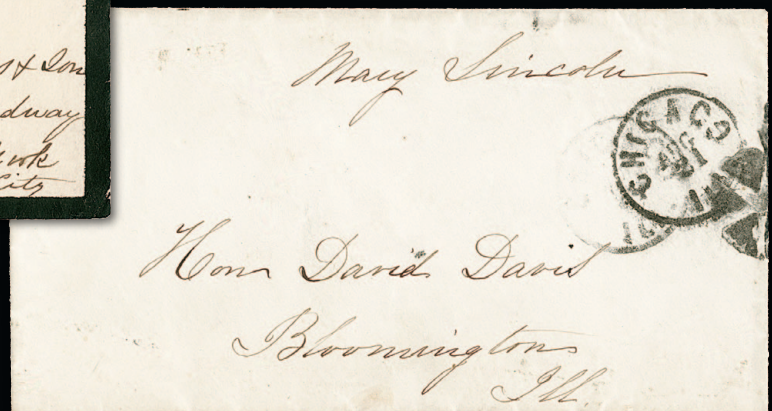 & Son
dway
York
City
Mary Lincoln
CHICAGO
21
Hon David Davis
Bloomington
Ill.